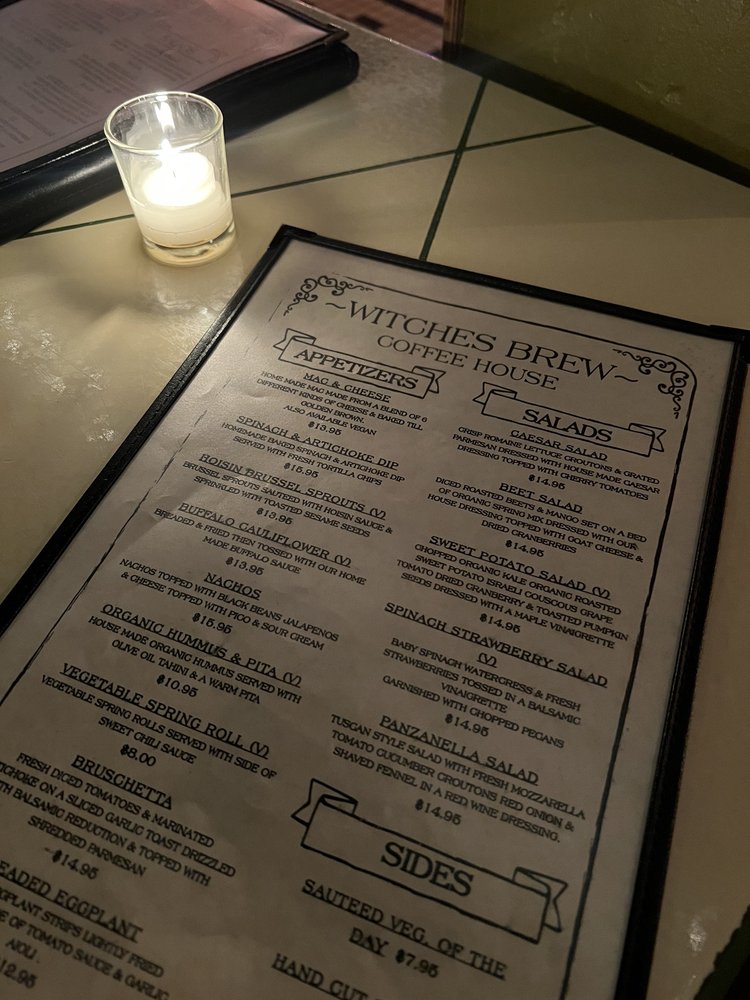 ~WITCHES BREW~
COFFEE HOUSE
APPETIZERS
MAC & CHEESE
HOME MADE MAC MADE FROM A BLEND OF 6
DIFFERENT KINDS OF CHEESE & BAKED TILL
GOLDEN BROWN.
ALSO AVAILABLE VEGAN
$13.95
SPINACH & ARTICHOKE DIP
HOMEMADE BAKED SPINACH & ARTICHOKE DIP
SERVED WITH FRESH TORTILLA CHIPS
$15.95
HOISIN BRUSSEL SPROUTS (V)
BRUSSEL SPROUTS SAUTEED WITH HOISIN SAUCE &
SPRINGLED WITH TOASTED SESAME SEEDS
$13.95
BUFFALO CAULIFLOWER (V)
BREADED & FRIED THEN TOSSED WITH OUR HOME
MADE BUFFALO SAUCE
$13.95
NACHOS
NACHOS TOPPED WITH BLACK BEANS JALAPENOS
& CHEESE TOPPED WITH PICO & SOUR CREAM
$15.95
ORGANIC HUMMUS & PITA (V)
HOUSE MADE ORGANIC HUMMUS SERVED WITH
OLIVE OIL TAHINI & A WARM PITA
$10.95
VEGETABLE SPRING ROLL (V)
VEGETABLE SPRING ROLLS SERVED WITH SIDE OF
SWEET CHILI SAUCE
$8.00
BRUSCHETTA
FRESH DICED TOMATOES & MARINATED
ON A SLICED GARLIC TOAST DRIZZLED
BALSAMIC REDUCTION & TOPPED WITH
SHREDDED PARMESAN
$14.95
EGGPLANT
STRIPS LIGHTLY FRIED
OF TOMATO SAUCE & GARLIC
AIOLI.
12.95
SALADS
CAESAR SALAD
CRISP ROMAINE LETTUCE CROUTONS & GRATED
PARMESAN DRESSED WITH HOUSE MADE CAESAR
DRESSING TOPPED WITH CHERRY TOMATOES
$14.95
BEET SALAD
DICED ROASTED BEETS & MANGO SET ON A BED
OF ORGANIC SPRING MIX DRESSED WITH OUR
HOUSE DRESSING TOPPED WITH GOAT CHEESE &
DRIED CRANBERRIES
$14.95
SWEET POTATO SALAD (V)
CHOPPED ORGANIC KALE ORGANIC ROASTED
SWEET POTATO ISRAELI COUSCOUS GRAPE
TOMATO DRIED CRANBERRY & TOASTED PUMPKIN
SEEDS DRESSED WITH A MAPLE VINAIGRETTE
$14.95
SPINACH STRAWBERRY SALAD
(V)
BABY SPINACH WATERCRESS & FRESH
STRAWBERRIES TOSSED IN A BALSAMIC
VINAIGRETTE
GARNISHED WITH CHOPPED PECANS
$14.95
PANZANELLA SALAD
TUSCAN STYLE SALAD WITH FRESH MOZZARELLA
TOMATO CUCUMBER CROUTONS RED ONION &
SHAVED FENNEL IN A RED WINE DRESSING.
$14.95
SIDES
SAUTEED VEG. OF THE
DAY $7.95
HAND CUT